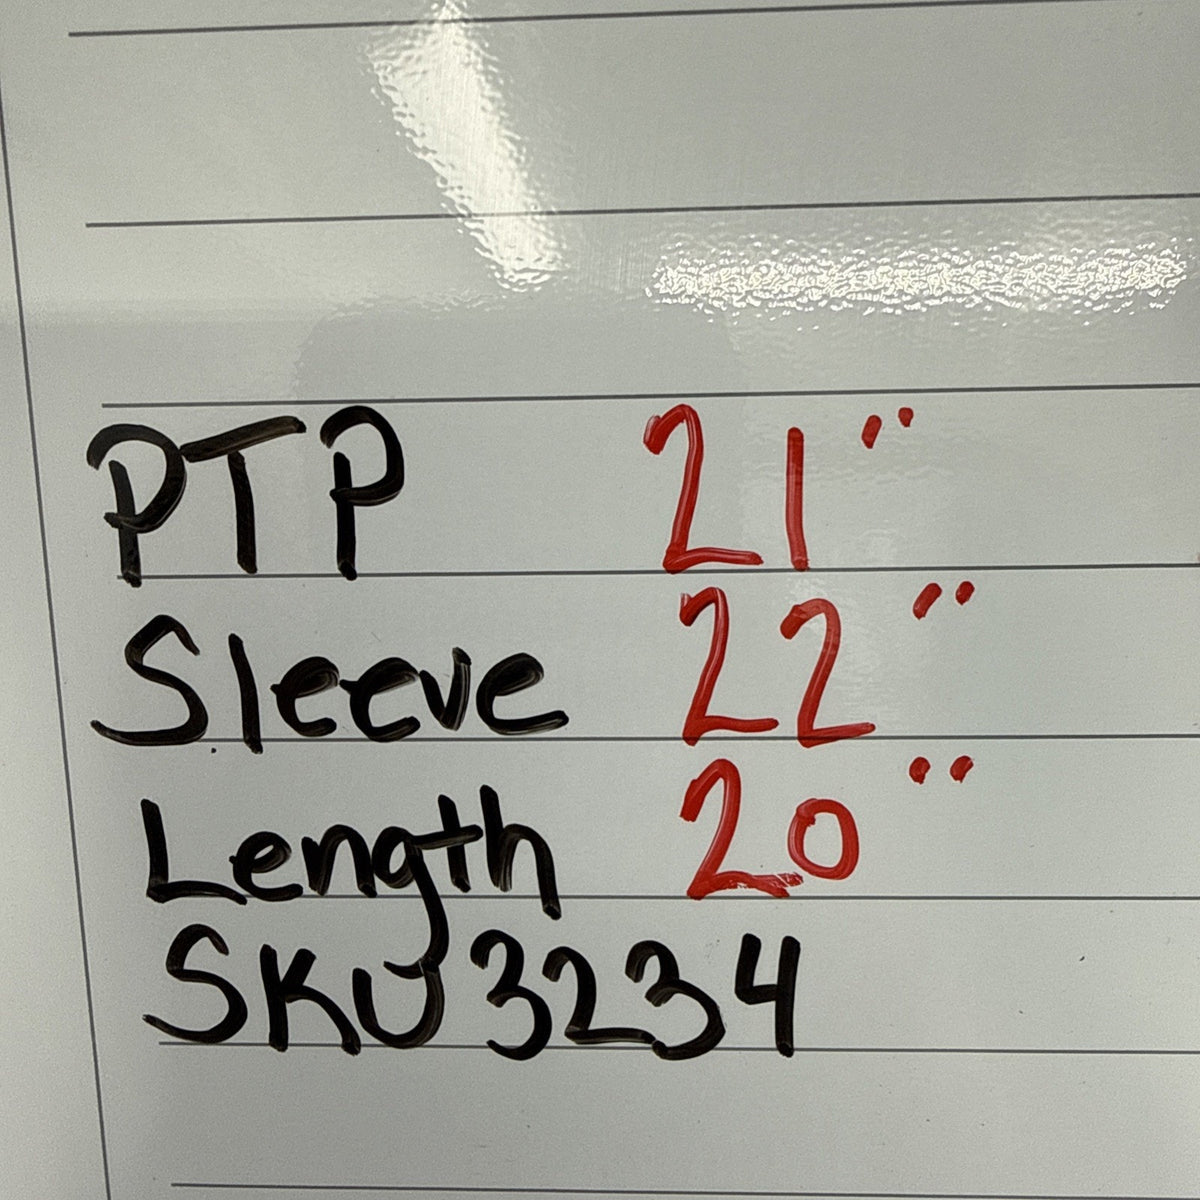 PTP 21"
Sleeve 22"
Length 20"
SKU 3234